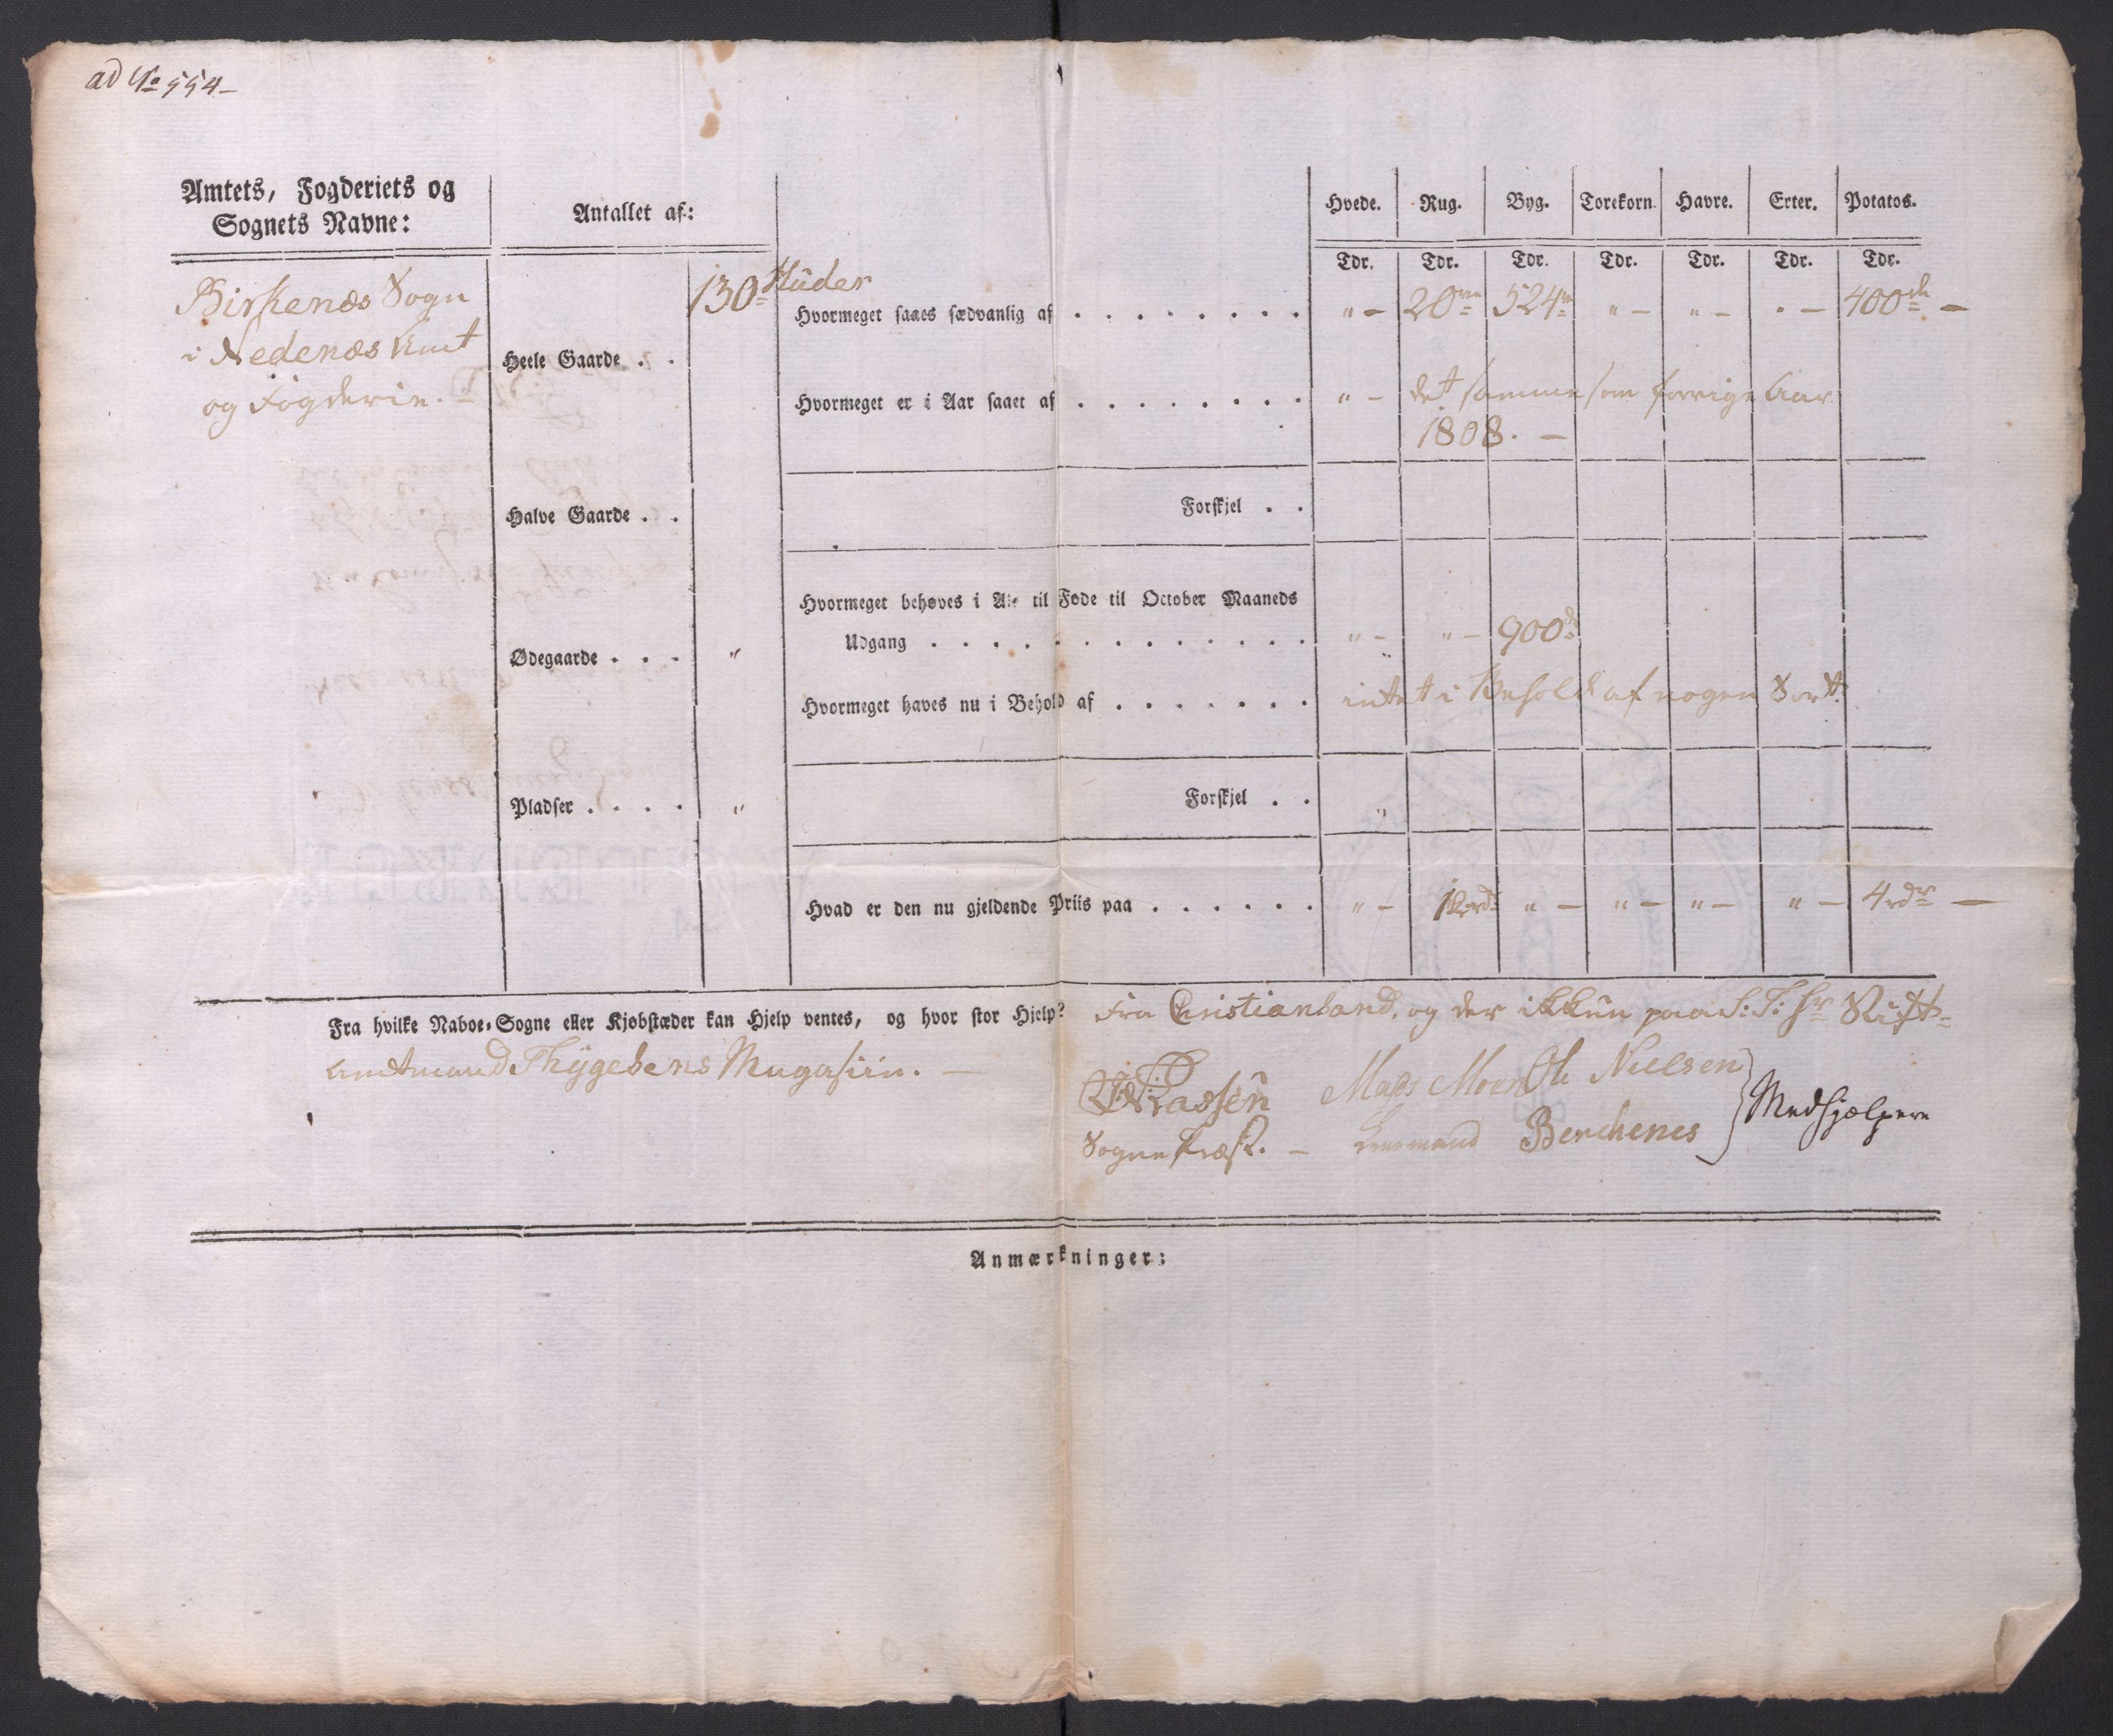 ad No 554 –
Amtets, Fogderiets og
Sognets Navne:
Antallet af:
Hvede. Rug. Byg. Torekorn. Havre. Erter. Potatos.
Tdr. Tdr. Tdr. Tdr. Tdr. Tdr. Tdr.
Birkenæs Sogn
i Nedenæs Amt
og Fogderie.
130 Huder
Heele Gaarde . .
Halve Gaarde . .
Ødegaarde . . . "
Pladser . . . . "
Hvormeget saaes sædvanlig af . . . . . . . . " – 20 524 " – " – " – 400 –
Hvormeget er i Aar saaet af . . . . . . . . " – det samme som forrige Aar
1808. –
Forskjel . .
Hvormeget behøves i Alt til Føde til October Maaneds
Udgang . . . . . . . . . . . . . " – " – 900
Hvormeget haves nu i Behold af . . . . . . . intet i Behold af nogen Sort.
Forskjel . . "
Hvad er den nu gjeldende Priis paa . . . . . . " – " – " – " – " – 4 rdr –
Fra hvilke Naboe-Sogne eller Kjøbstæder kan Hjelp ventes, og hvor stor Hjelp? Fra Christiansand, og der ikkun paa S: T: Hr Stift-
amtmand Thygesens Magasiin. –
Mads Moen Ole Nielsen
Sognepræst. – Leensmand Berchenes } Medhjælpere
Anmærkninger: